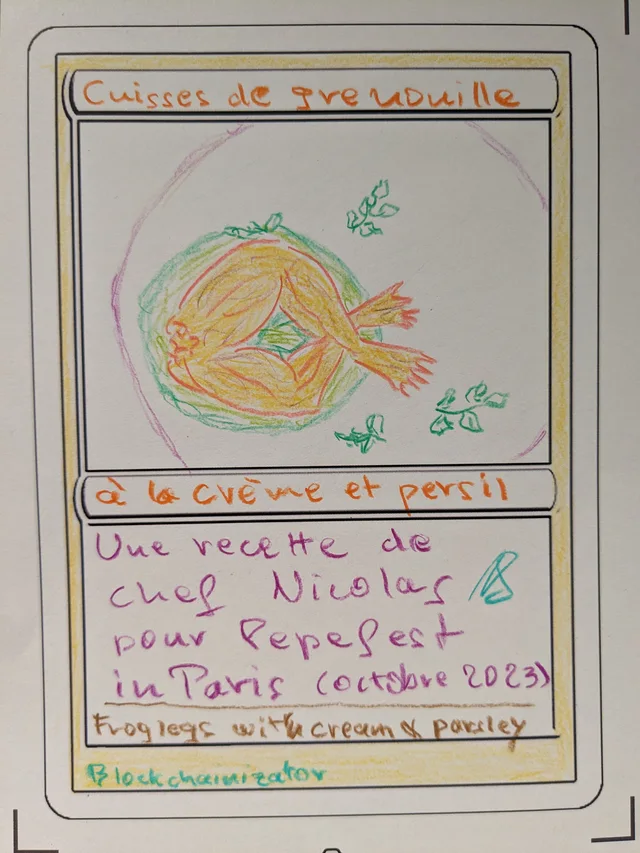 Cuisses de grenouille
à la crème et persil
Une recette de
chef Nicolas
pour Pepefest
in Paris (octobre 2023)
Froglegs with cream & parsley
Blockchainizator